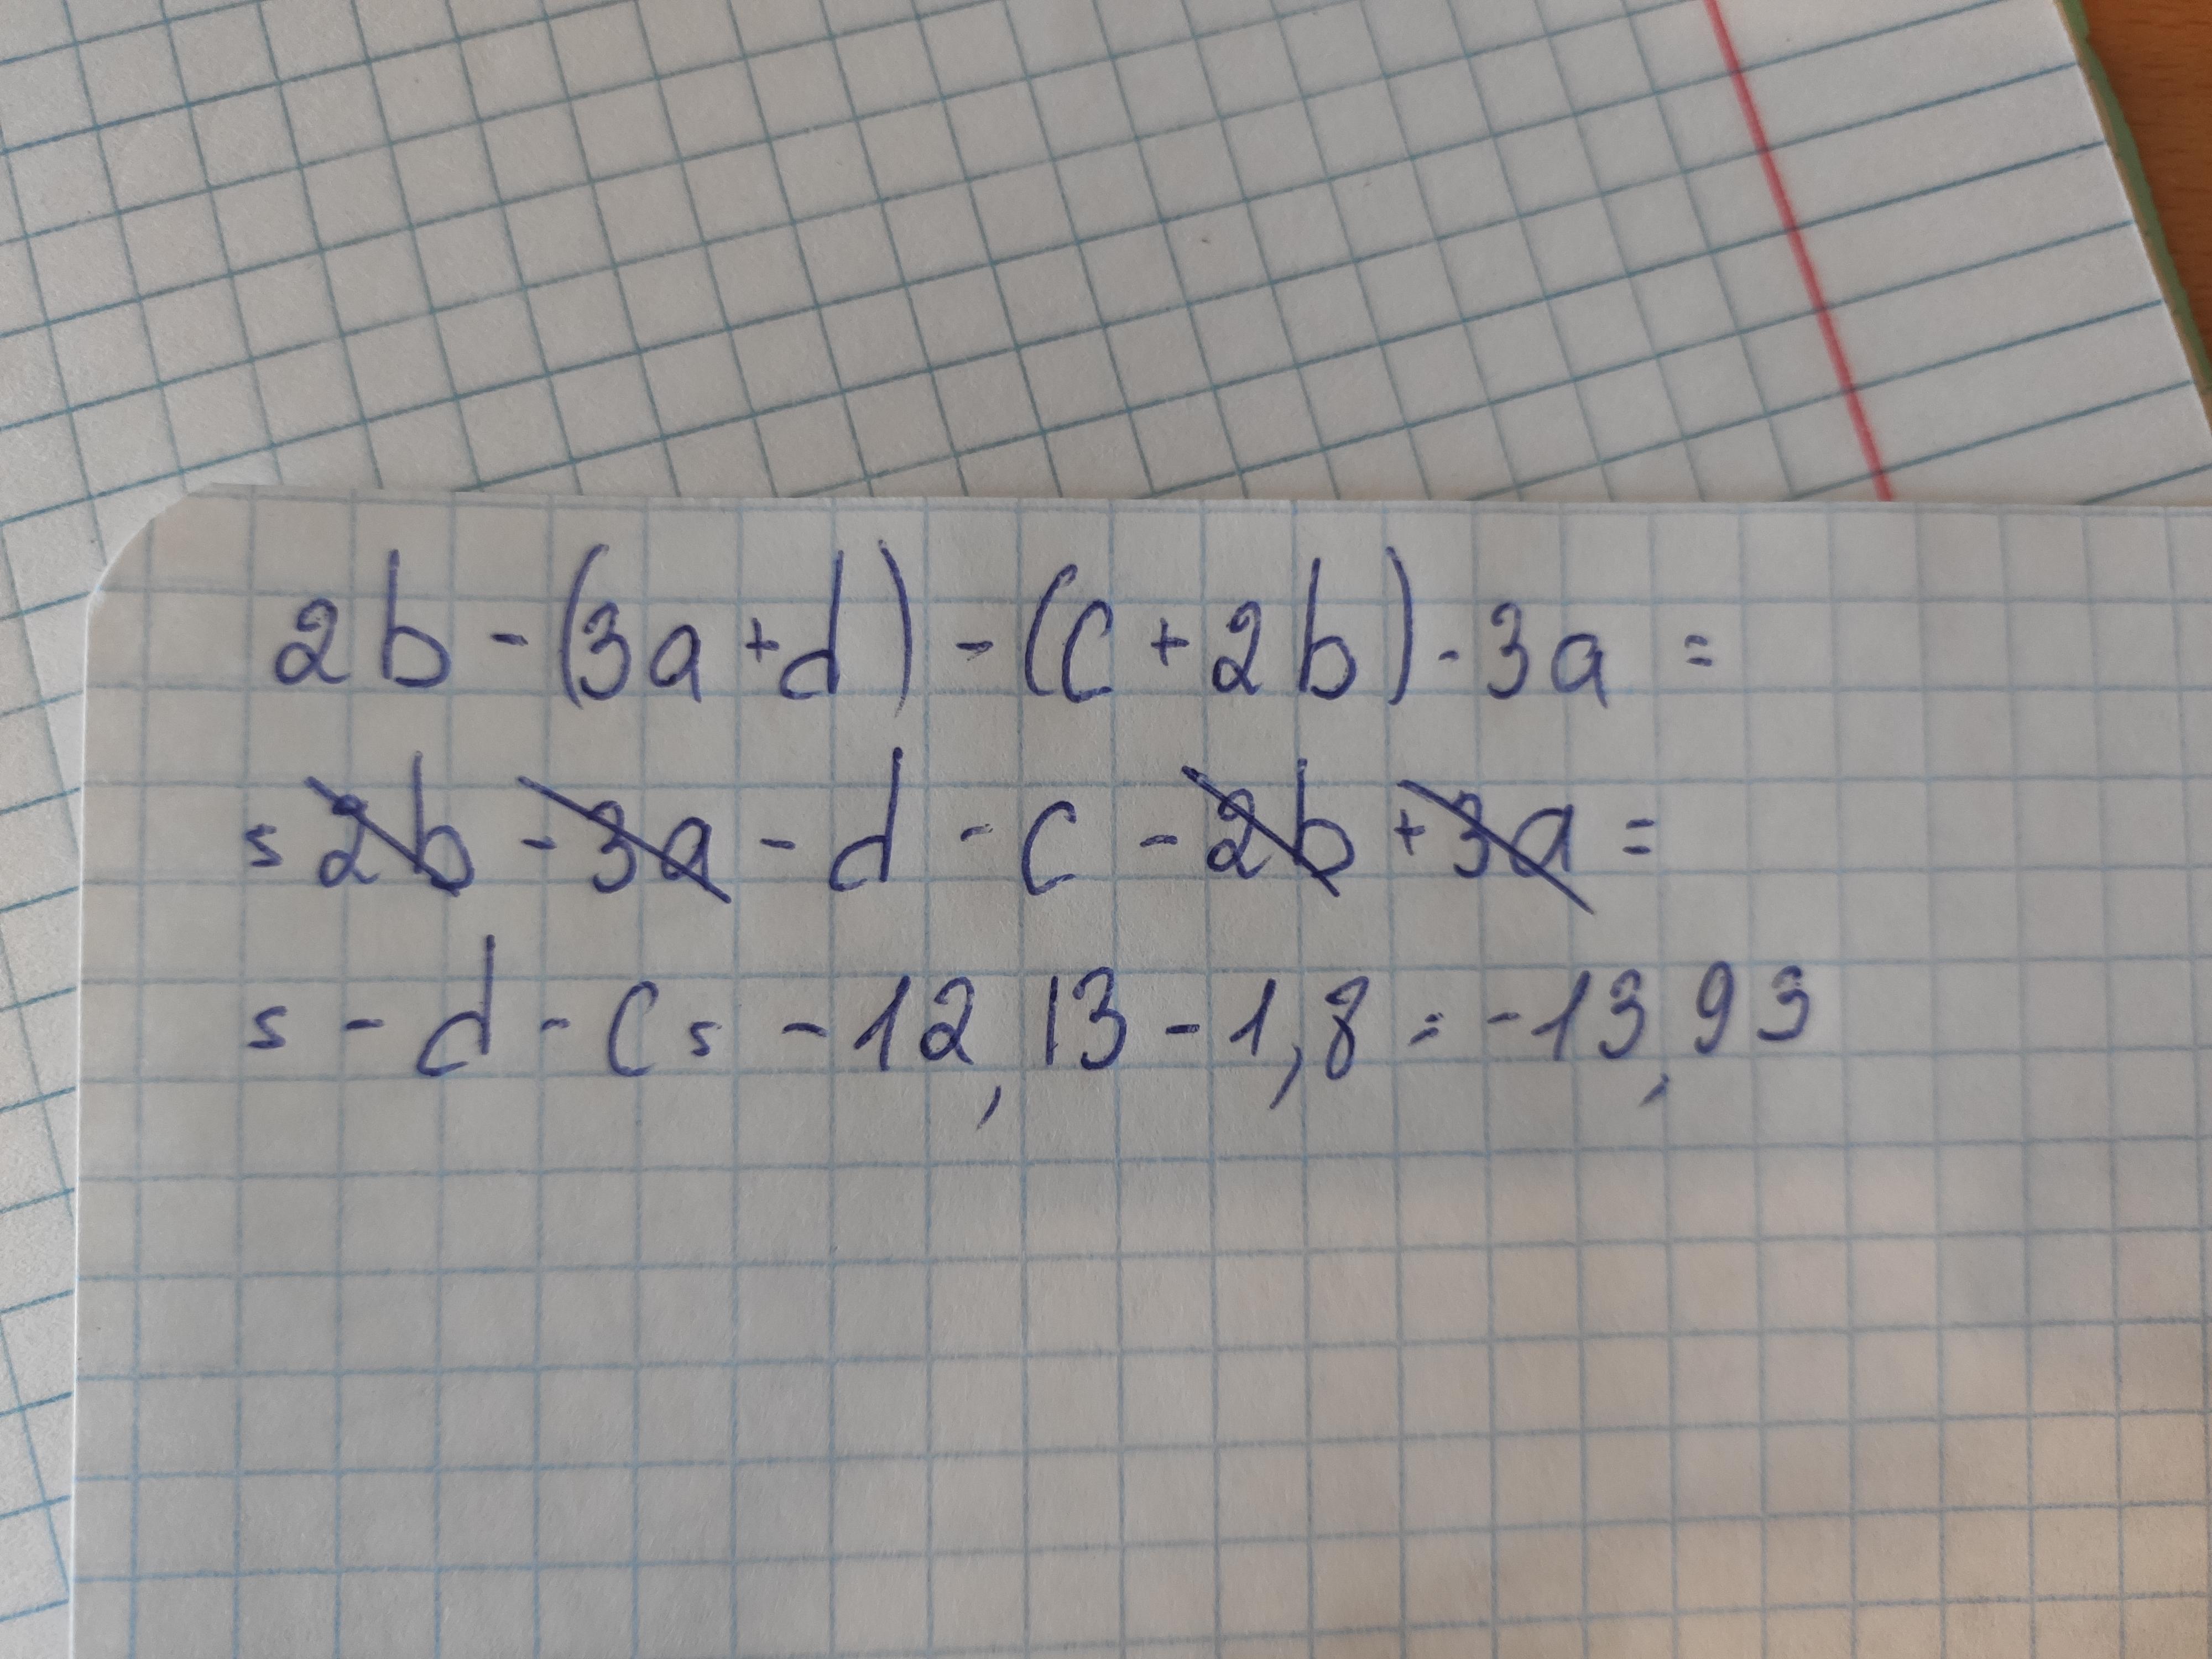 2b - (3a + d) - (c + 2b) - 3a =
= 2b - 3a - d - c - 2b + 3a =
= - d - c = - 12,13 - 1,8 = - 13,93